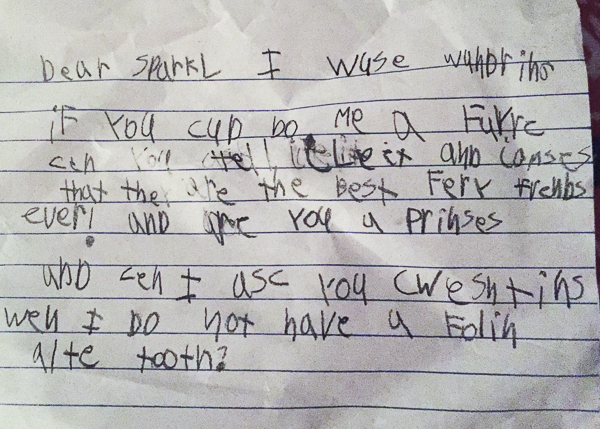 Dear SParkL I wuse wanDrins
iF You cuD Do Me a Fukre
cen You tell and
that the are the Best Fery frenDs
ever! anD are You a Prinses
anD cen I asc You cweshtins
wen I Do not have a Folin
alte tooth?